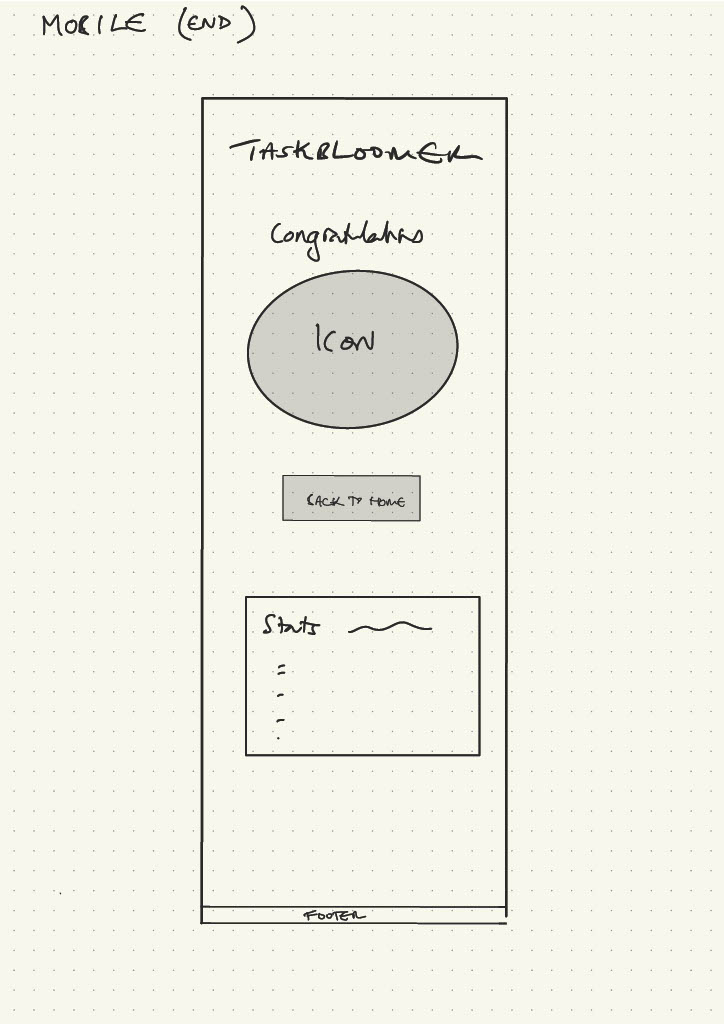 MOBILE (END)
TASKBLOOMER
Congratulations
ICON
BACK TO HOME
Stats
FOOTER